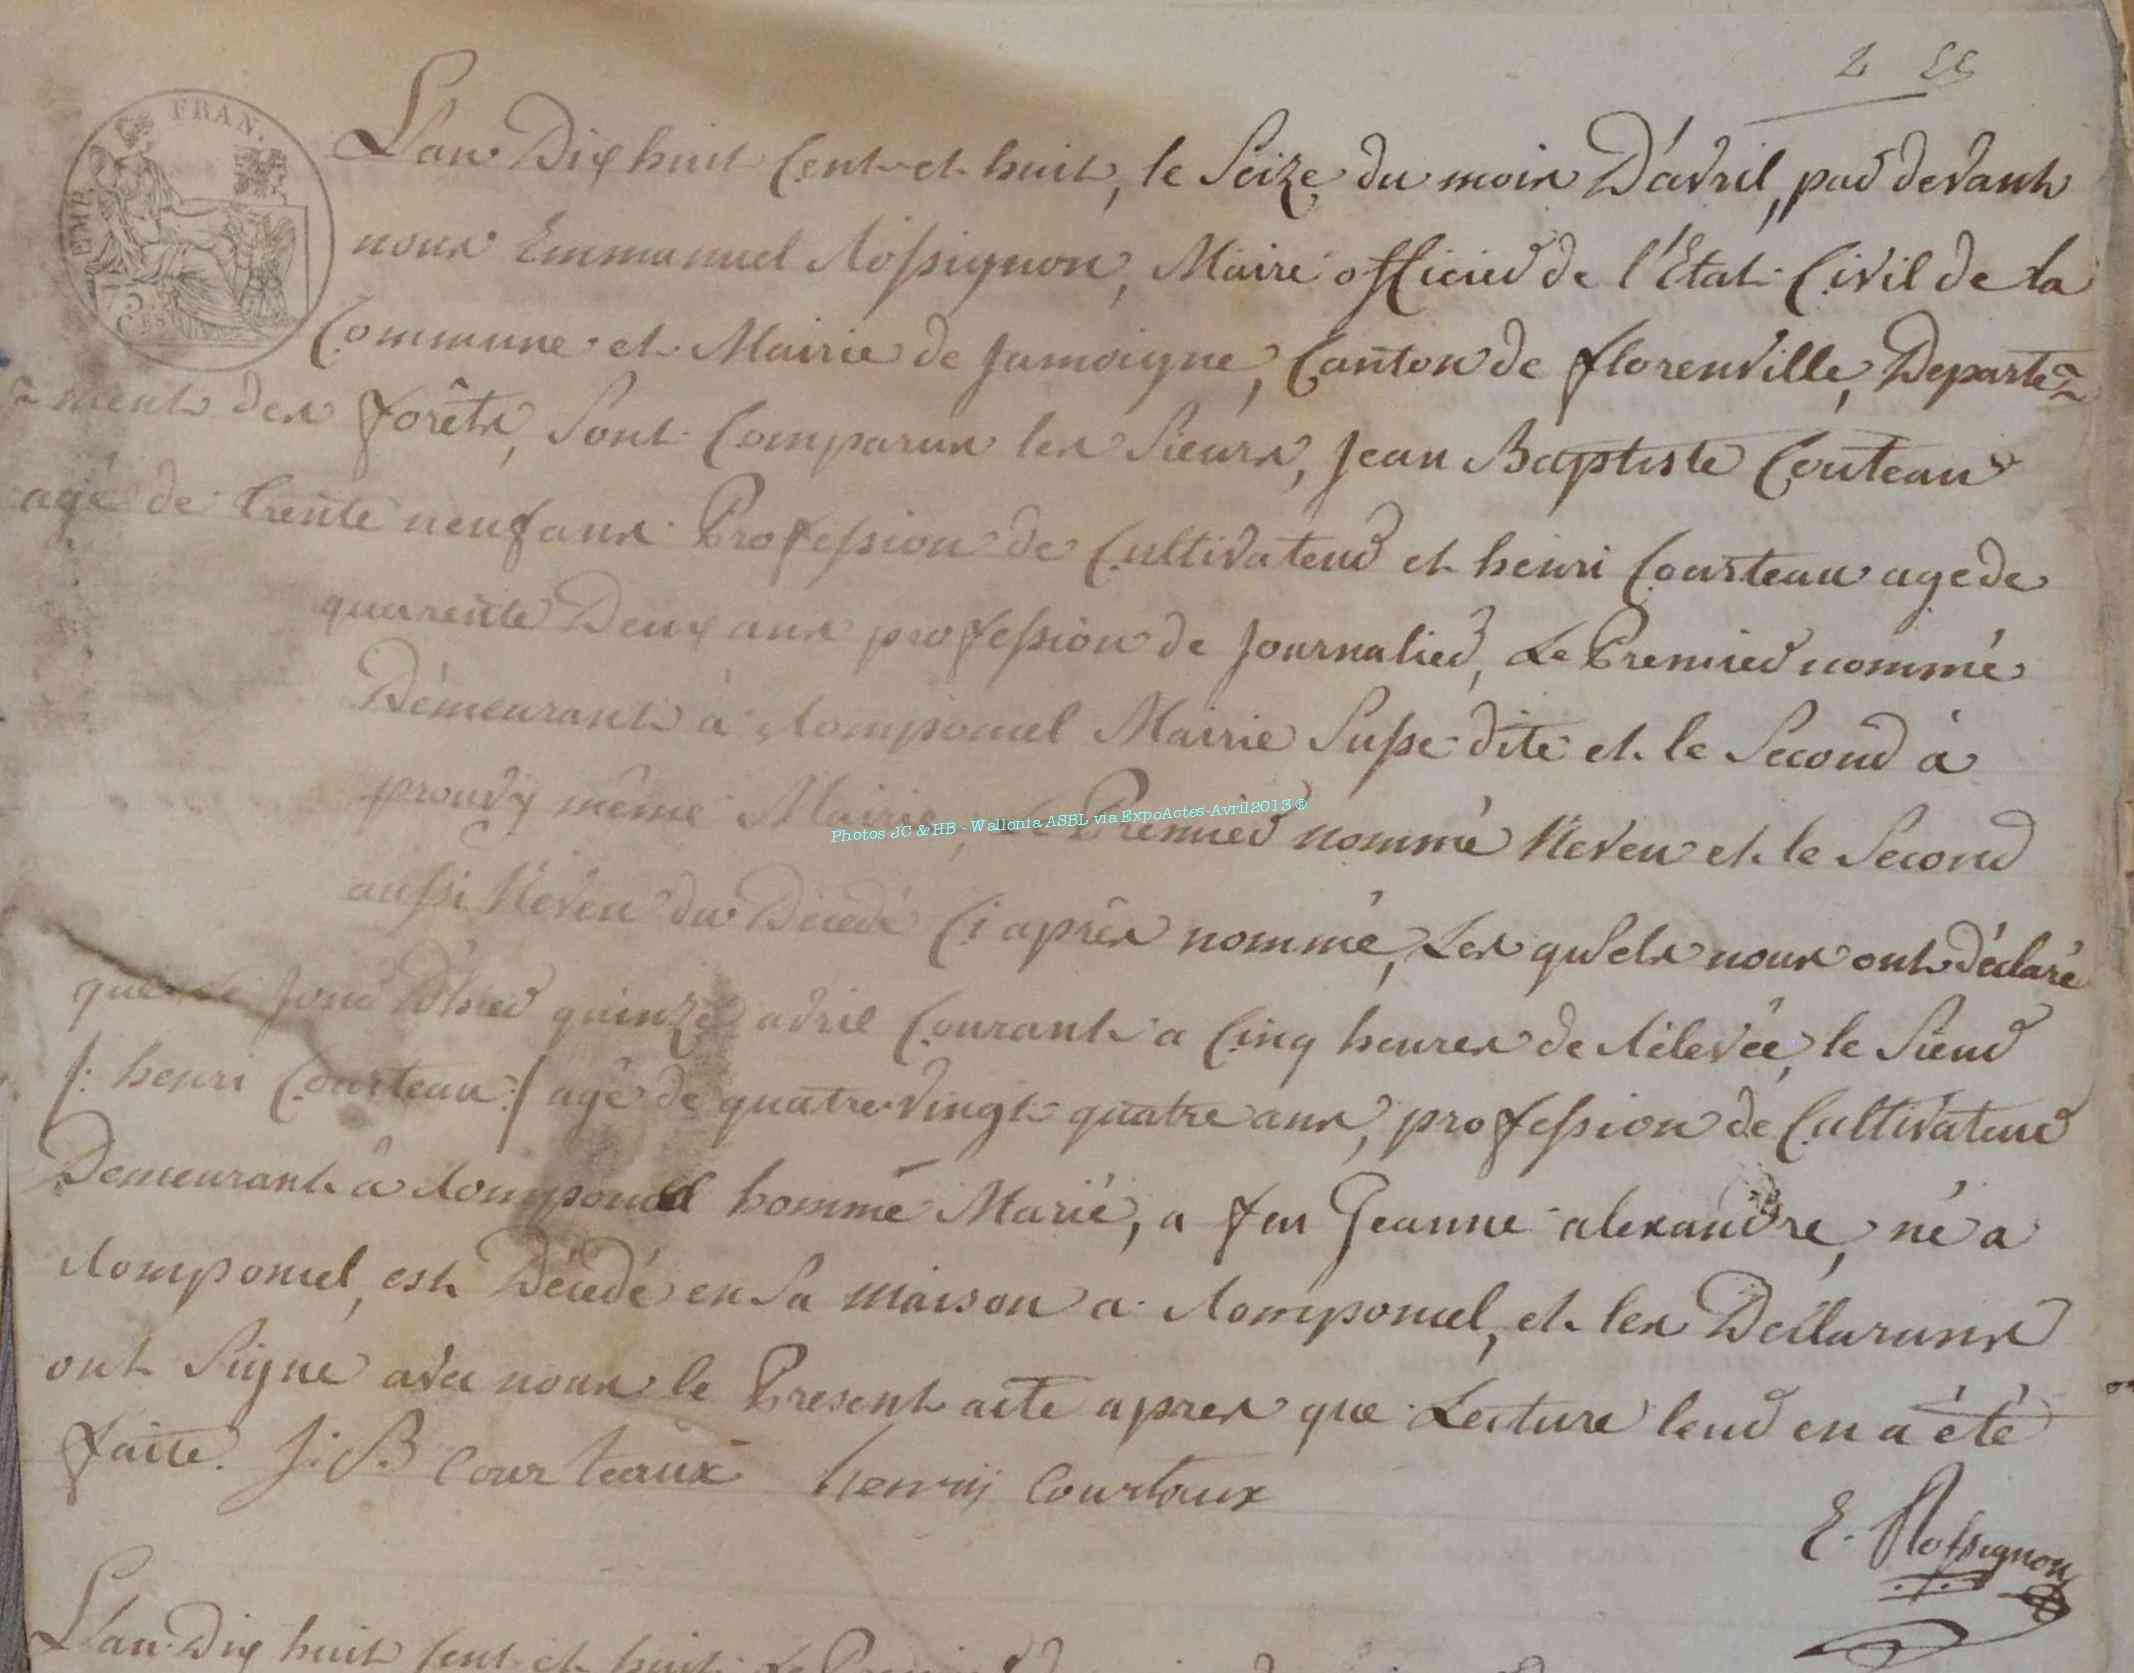 2 55
EMP. FRAN.
L'an Dix huit Cent et huit, le Seize du mois D'avril, par devant
nous Emmanuel Rossignon, Maire officier de l'Etat Civil de la
Commune et Mairie de Jamoigne, Canton de florenville, Departe=
=ment des forêts, Sont Comparus les Sieurs, Jean Baptiste Couteau
agé de trente neuf ans Profession de Cultivateur et henri Courteau age de
quarente Deux ans profession de Journalier, Le Premier nommé
Démeurant à Romponcel Mairie Susse dite et le Second à
prouvy même Mairie, Le Premier nommé Neveu et le Second
Photos JC & HB - Wallonia ASBL via ExpoActes-Avril2013 ©
aussi Neveu du Décédé Ci après nommé, Les quels nous ont Déclaré
que le Jour D'hier quinze avril Courant a Cinq heures de rélevée, le Sieur
/: henri Courteau :/ agé de quatre vingt quatre ans, profession de Cultivateur
Demeurant à Romponcel homme Marié, a feu Jeanne alexandre, né a
Romponcel, est Décédé en Sa maison a Romponcel, et les Déclarans
ont Signé avec nous le Present acte apres que Lecture leur en a été
faite. J: B Courteaux henrij Courtoux
E. Rossignon
L'an Dix huit Cent et huit Le